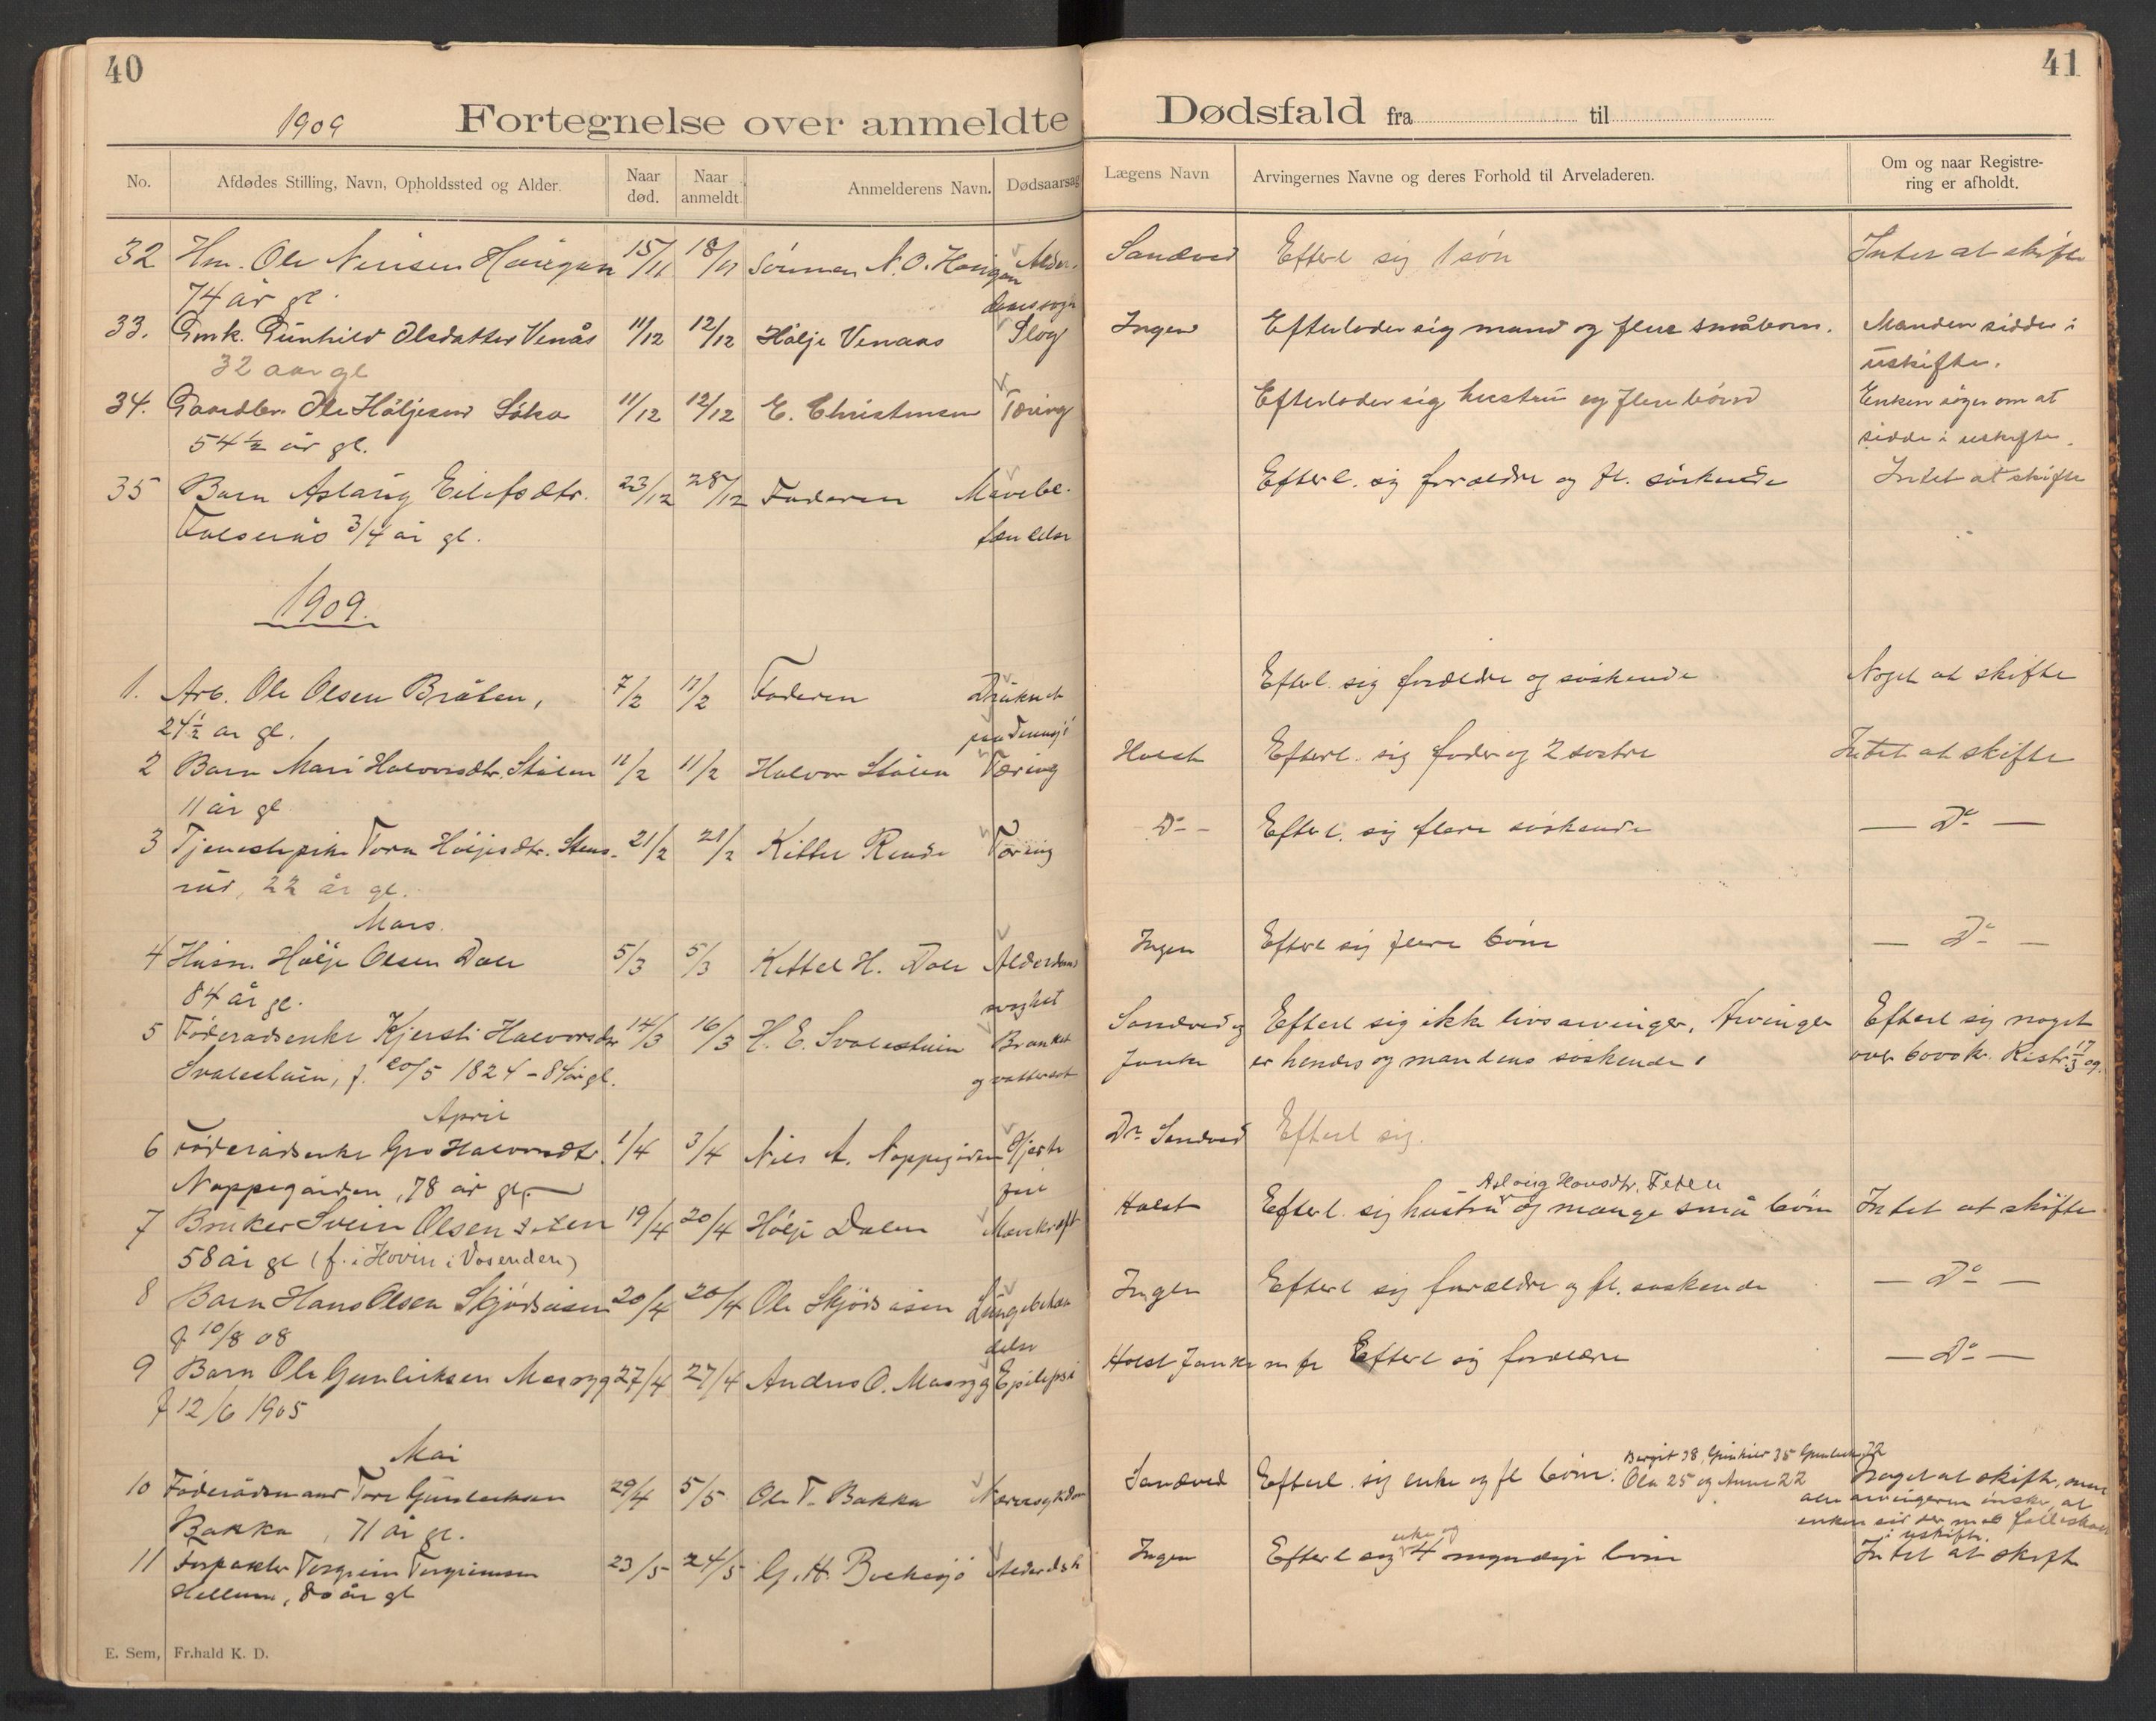 40
1909 Fortegnelse over anmeldte
No. Afdødes Stilling, Navn, Opholdssted og Alder. Naar død. Naar anmeldt. Anmelderens Navn. Dødsaarsag
32 Hm. Ole 15/11 18/11 Sönnen N. O. Alder-
74 år gl. domssvagh
33. Gmk. Gunhild Olsdatter Venås 11/12 12/12 Hölje Venaas Slag
32 aar gl
34. Gaardbr. Ole Höljesend 11/12 12/12 E. Christensen Tæring
54 ½ år gl.
35 Barn Aslaug Eilefsdtr. 23/12 28/12 Faderen Mavebe-
3/4 år gl.
1909.
1. Arb. Ole Olsen Bråten, 7/2 11/2 Faderen Druknet
24½ år gl.
2 Barn Mari Halvorsdtr. Stålen 11/2 11/2 Halvor Stålen Tæring
11 år gl
3 Tjenestepike Tora Höljesdtr. Stens- 21/2 21/2 Kittel Tæring
rud, 22 år gl.
Mars.
4 Husm. Hölje Olsen Dale 5/3 5/3 Kittel H. Dale Alderdoms
84 år gl. svaghet
5 Föderådsenke Kjersti Halvorsdtr 14/3 16/3 H. E. Svalestuin
Svalestuin, f. 20/5 1824 - 84 år gl.
April
6 Föderådsenke Gro Halvorsdtr. 1/4 3/4 Nils A. Noppegården Hjerte
Noppegården, 78 år gl. feil
7 Bruker Svein Olsen 19/4 20/4 Hölje Dalen Mavekræft
58 år gl (f. i Hovin i Vosenden)
8 Barn Hans Olsen Skjördsåsen 20/4 20/4 Ole Skjördsåsen
f 10/8 08
9 Barn Ole Gunleiksen 27/4 27/4 Andres O. Epilepsi
f 12/6 1905
Mai
10 Föderådsmand Tore Gunleiksen 29/4 5/5 Ole T. Bakka
Bakka, 71 år gl.
11 Forpakter Torgrim Torgrimsen 23/5 24/5 G. H.
Hellum, 80 år gl
E. Sem, Fr.hald K. D.
41
Dødsfald fra til
Lægens Navn Arvingernes Navne og deres Forhold til Arveladeren. Om og naar Registrering er afholdt.
Sandved Efterl sig 1 sön Intet at skifte
Ingen Efterlader sig mand og flere småbørn. Manden sidder i
uskifte.
Efterlader sig hustru og flere börn Enken söger om at
sidde i uskifte.
Efterl. sig forældre og fl. söskende Intet at skifte
Efterl. sig forældre og söskende Noget at skifte
Holst Efterl. sig fader og 2 söstre Intet at skifte
Do - Efterl. sig flere söskende — Do —
Ingen Efterl sig flere börn — Do —
Sandved og Efterl sig ikke livsarvinger. Arvinger Efterl sig noget
Janke er hendes og mandens söskende. over 6000 kr. Restr. 17/3 09.
Dr. Sandved Efterl sig.
Aslaug Hansdtr.
Holst Efterl. sig hustru og mange små börn Intet at skifte
Ingen Efterl sig forældre og fl. søskende — Do —
Holst Janke m fl Efterl sig forældre — Do —
Bergit 38, Gunhild 35 Gunleik 32
Sandved Efterl. sig enke og fl börn: Ola 25 og Anne 22 Noget at skifte, men
alle arvingerne ønsker, at
i uskifte.
enke og
Ingen Efterl sig 4 myndige börn Intet at skifte